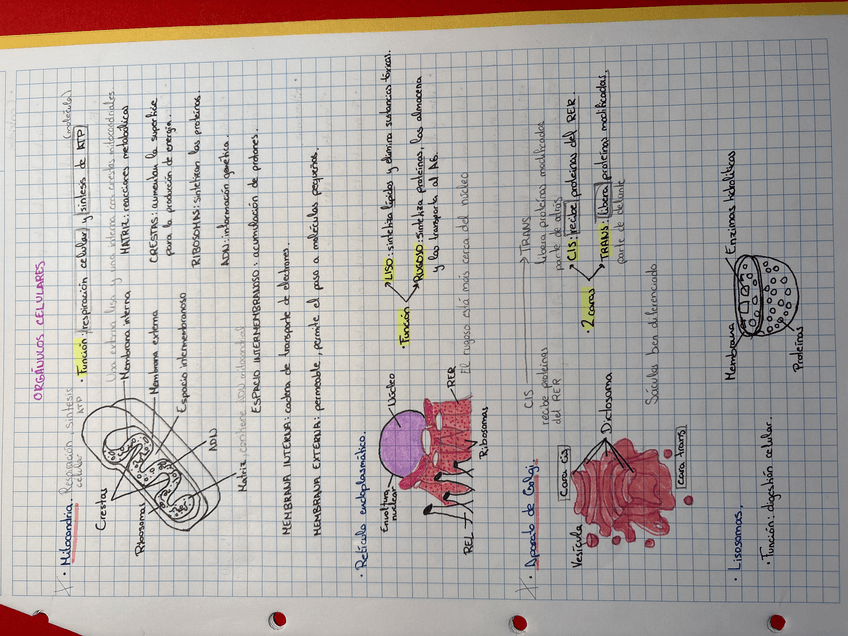 ORGÁNULOS CELULARES
· Mitocondria. Respiración, síntesis
celular ATP
· Función: respiración celular y síntesis de ATP (molécula)
Una externa lisa y una interna con crestas mitocondriales
Crestas
Ribosomas
Membrana interna
Membrana externa
Espacio intermembranoso
ADN
Matriz, contiene ADN mitocondrial
MATRIZ: reacciones metabólicas
CRESTAS: aumentan la superficie
para la producción de energía.
RIBOSOMAS: sintetizan las proteínas.
ADN: información genética.
ESPACIO INTERMEMBRANOSO: acumulación de protones.
MEMBRANA INTERNA: cadena de transporte de electrones.
MEMBRANA EXTERNA: permeable, permite el paso a moléculas pequeñas.
· Retículo endoplasmático.
Envoltura
nuclear
Núcleo
RER
REL
Ribosomas
· Función
LISO: sintetiza lípidos y elimina sustancias tóxicas.
RUGOSO: sintetiza proteínas, las almacena
y las transporta al AG.
El rugoso está más cerca del núcleo
· Aparato de Golgi.
CIS
TRANS
recibe proteínas
del RER
libera proteínas modificadas
parte de atrás
Vesícula
Cara cis
Dictiosoma
Cara trans
· 2 caras
CIS: recibe proteínas del RER.
TRANS: libera proteínas modificadas.
parte de delante
Sáculos bien diferenciado
· Lisosomas.
· Función: digestión celular.
Membrana
Enzimas hidrolíticas
Proteínas